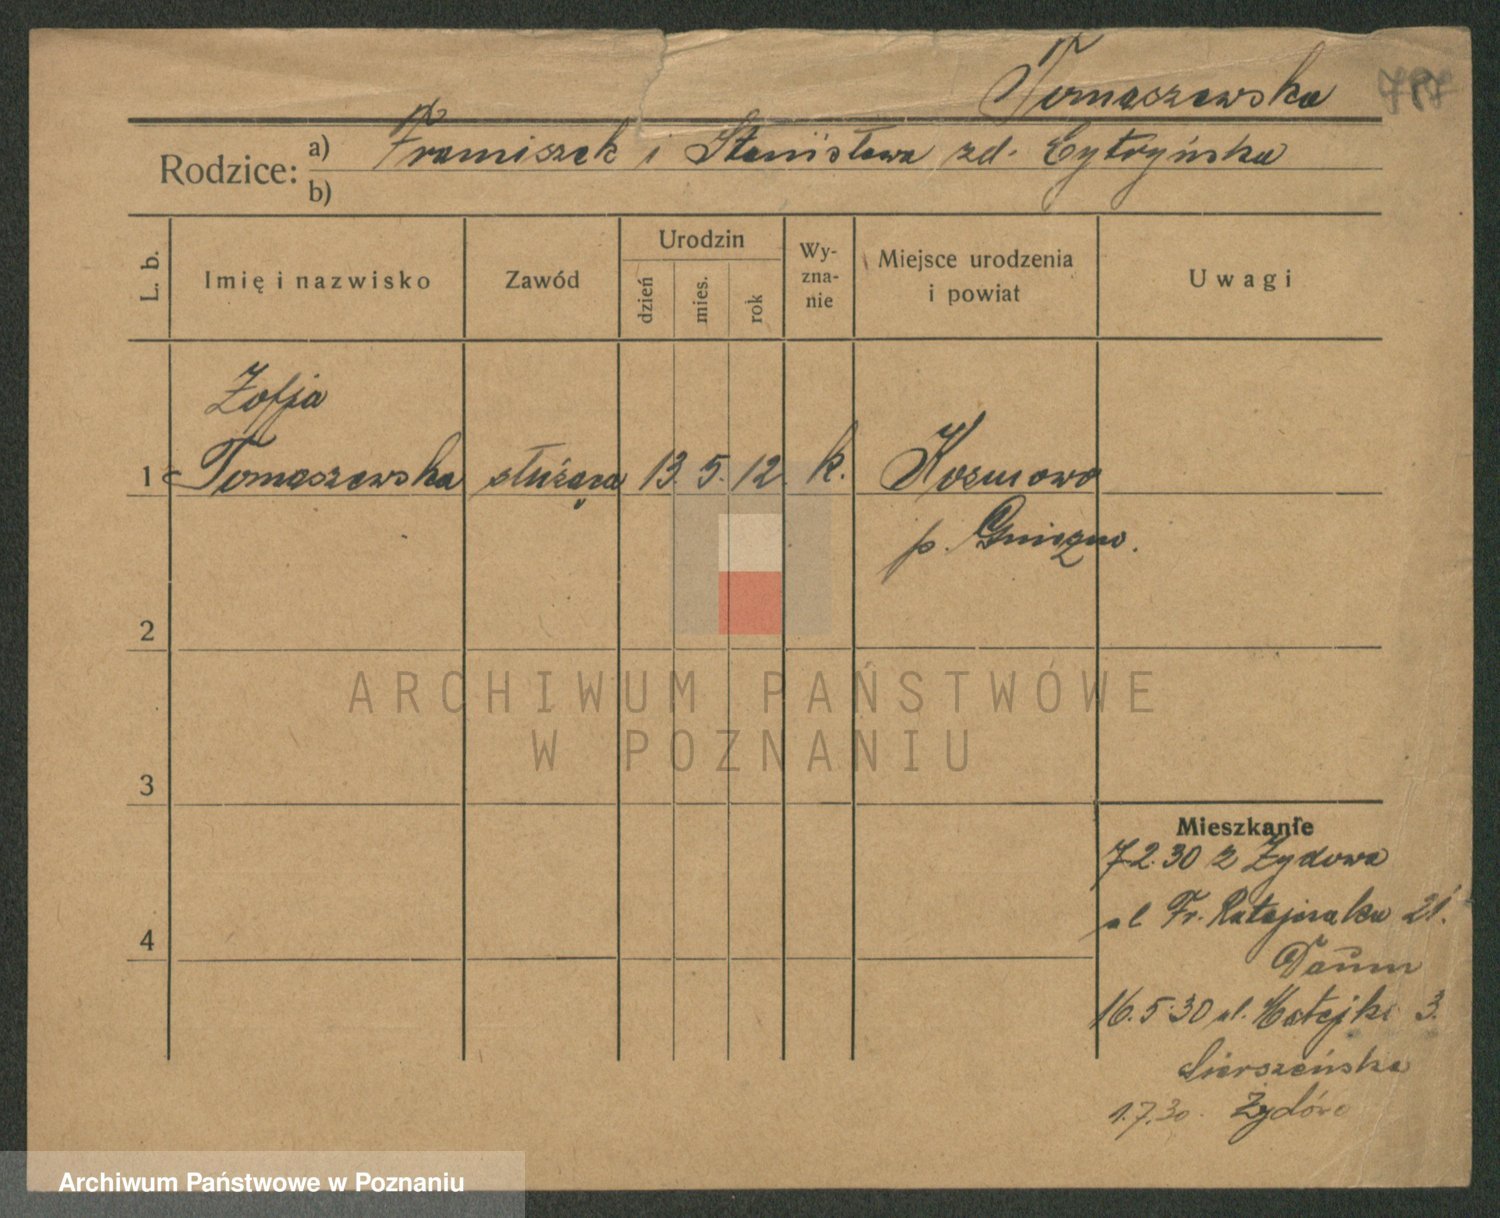 Tomaszewska 787
Rodzice: a) Franciszek i Stanisława zd. Cytryńska
b)
L. b. Imię i nazwisko Zawód Urodzin dzień mies. rok Wy-zna-nie Miejsce urodzenia i powiat Uwagi
Zofja
1 Tomaszewska służąca 13. 5. 12. k. Kosmowo
p. Gniezno.
2
3
4
Mieszkanie
7.2.30 z Żydowa
ul. Fr. Ratajczaka 21.
Daum
16.5.30 ul. Matejki 3.
Sierszeńska
1.7.30. Żydowo
ARCHIWUM PAŃSTWOWE
W POZNANIU
Archiwum Państwowe w Poznaniu